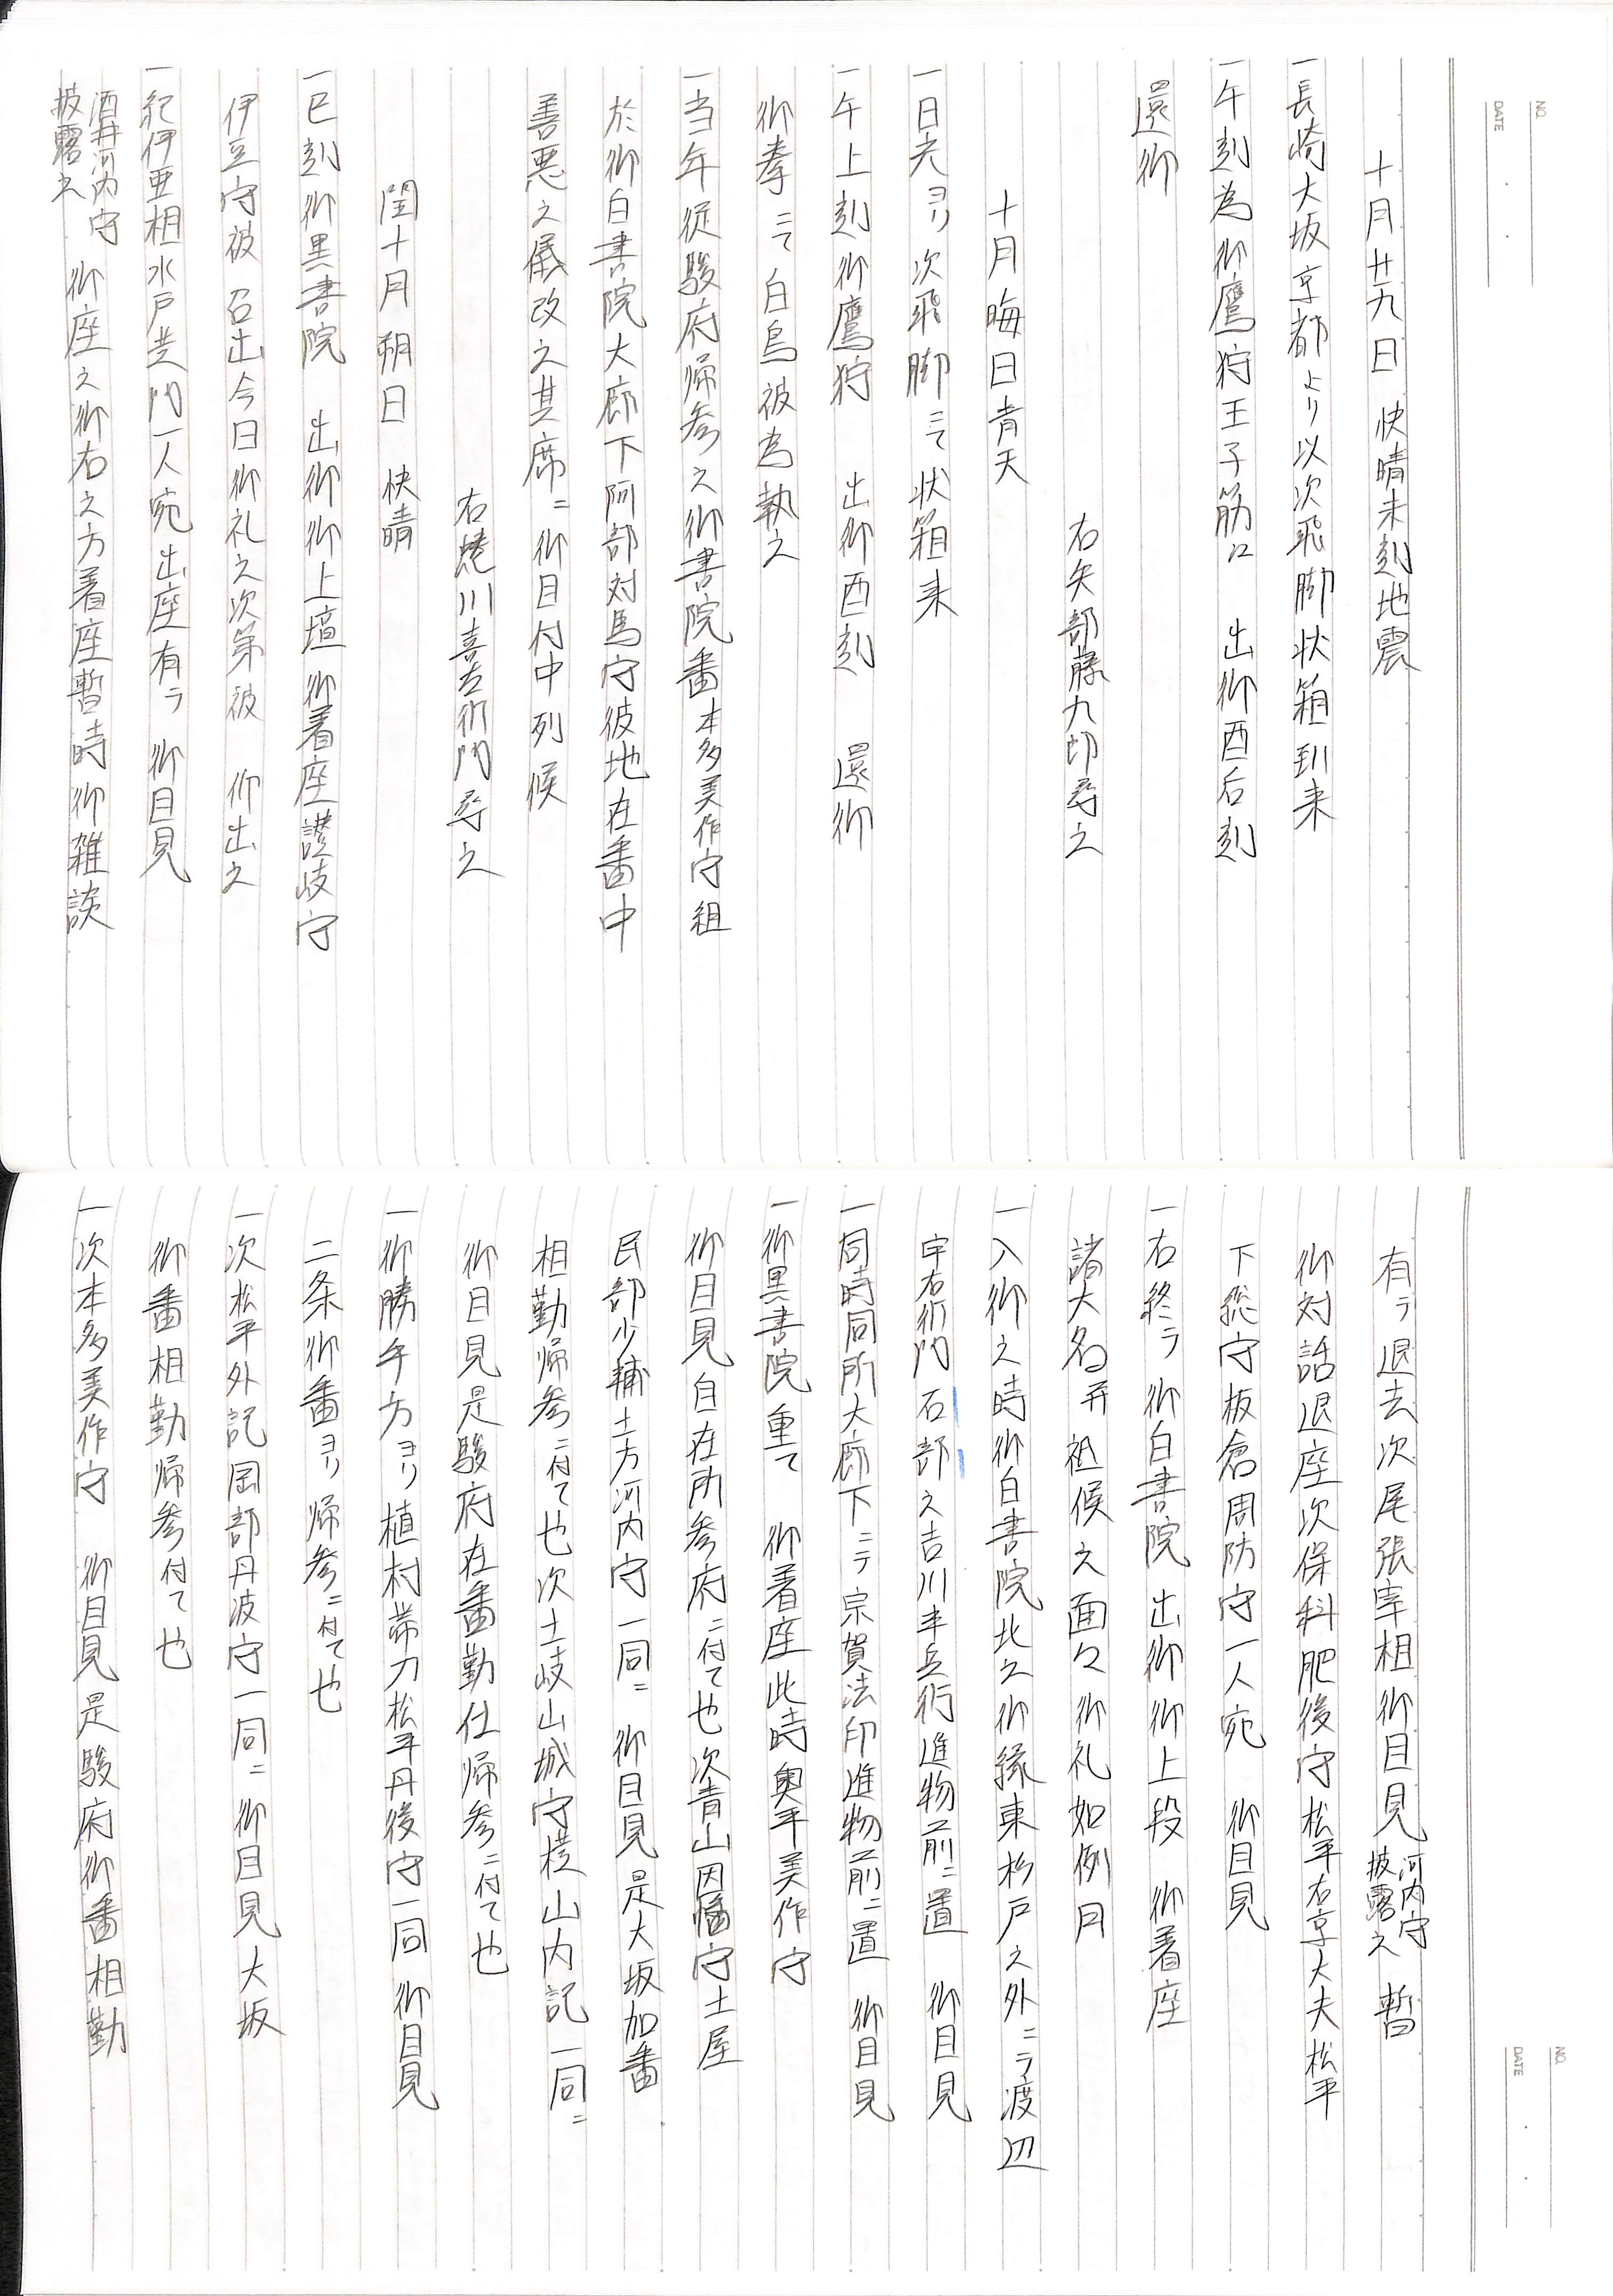 NO.
DATE
十月廿九日 快晴未刻地震
一長崎大坂京都より以次飛脚状箱到来
一午刻為御鷹狩王子筋江 出御酉后刻
還御
右矢部藤九郎尋之
十月晦日青天
一日光ヨリ次飛脚ニて状箱来
一午上刻御鷹狩 出御酉刻 還御
御拳ニて白鳥被為執之
一当年従駿府帰参之御書院番本多美作守組
於御白書院大廊下阿部対馬守彼地在番中
善悪之儀改之其席ニ御目付中列候
右蜷川喜左衛門尋之
閏十月朔日 快晴
一巳刻御黒書院 出御御上壇御着座讃岐守
伊豆守被 召出今日御礼之次第被 仰出之
一紀伊亜相水戸黄門一人宛出座有テ 御目見
酒井河内守
披露之 御座之御右之方着座暫時御雑談
有テ退去次尾張宰相御目見河内守披露之 暫
御対話退座次保科肥後守松平右京大夫松平
下総守板倉周防守一人宛 御目見
一右終テ 御白書院出御御上段 御着座
諸大名并祗候之面々御礼如例月
一入御之時御白書院北之御縁東杉戸之外ニテ渡辺
宇右衛門石部之吉川半兵衛進物前ニ置 御目見
一同時同所大廊下ニテ宗賀法印進物前ニ置 御目見
一御黒書院重て 御着座此時奥平美作守
御目見自在所参府ニ付て也次青山因幡守土屋
民部少輔土方河内守一同ニ 御目見是大坂加番
相勤帰参ニ付て也次土岐山城守横山内記一同ニ
御目見是駿府在番勤仕帰参ニ付て也
一御勝手方ヨリ植村帯刀松平丹後守一同御目見
二条御番ヨリ帰参ニ付て也
一次松平外記岡部丹波守一同ニ御目見大坂
御番相勤帰参付て也
一次本多美作守 御目見是駿府御番相勤
NO.
DATE